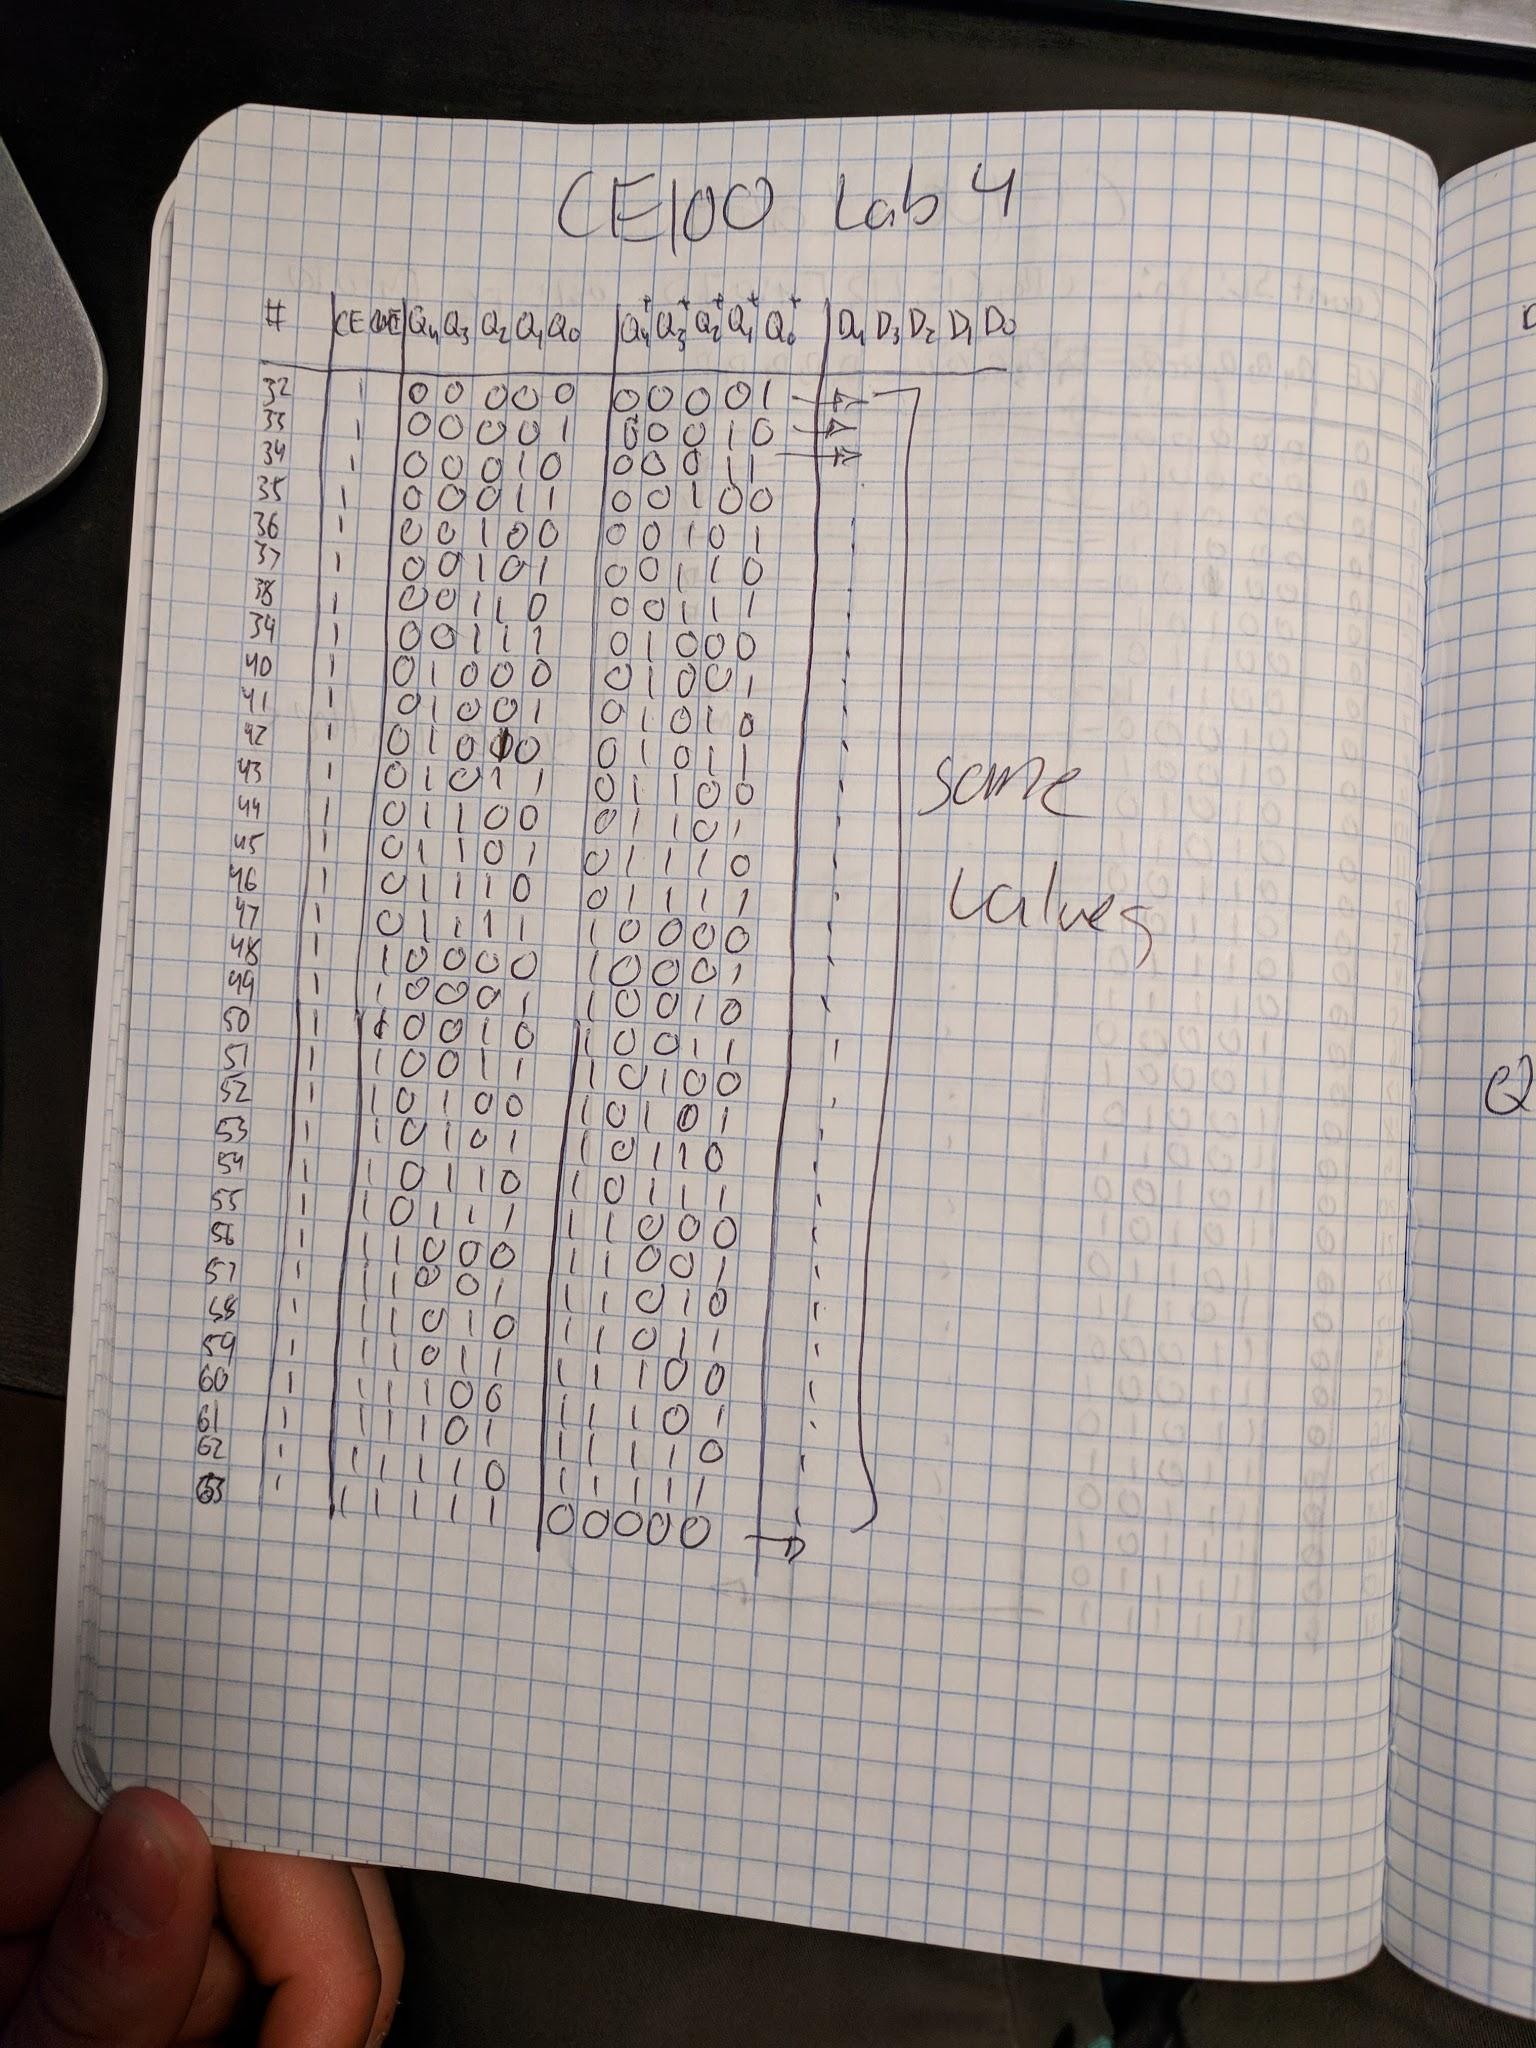 CE100 Lab 4
# CE Q4 Q3 Q2 Q1 Q0 Q4+ Q3+ Q2+ Q1+ Q0+ D4 D3 D2 D1 D0
32 1 0 0 0 0 0 0 0 0 0 1 →
33 1 0 0 0 0 1 0 0 0 1 0 →
34 1 0 0 0 1 0 0 0 0 1 1 →
35 1 0 0 0 1 1 0 0 1 0 0
36 1 0 0 1 0 0 0 0 1 0 1
37 1 0 0 1 0 1 0 0 1 1 0
38 1 0 0 1 1 0 0 0 1 1 1
39 1 0 0 1 1 1 0 1 0 0 0
40 1 0 1 0 0 0 0 1 0 0 1
41 1 0 1 0 0 1 0 1 0 1 0
42 1 0 1 0 1 0 0 1 0 1 1
43 1 0 1 0 1 1 0 1 1 0 0
same
44 1 0 1 1 0 0 0 1 1 0 1
45 1 0 1 1 0 1 0 1 1 1 0
46 1 0 1 1 1 0 0 1 1 1 1
values
47 1 0 1 1 1 1 1 0 0 0 0
48 1 1 0 0 0 0 1 0 0 0 1
49 1 1 0 0 0 1 1 0 0 1 0
50 1 1 0 0 1 0 1 0 0 1 1
51 1 1 0 0 1 1 1 0 1 0 0
52 1 1 0 1 0 0 1 0 1 0 1
53 1 1 0 1 0 1 1 0 1 1 0
54 1 1 0 1 1 0 1 0 1 1 1
55 1 1 0 1 1 1 1 1 0 0 0
56 1 1 1 0 0 0 1 1 0 0 1
57 1 1 1 0 0 1 1 1 0 1 0
58 1 1 1 0 1 0 1 1 0 1 1
59 1 1 1 0 1 1 1 1 1 0 0
60 1 1 1 1 0 0 1 1 1 0 1
61 1 1 1 1 0 1 1 1 1 1 0
62 1 1 1 1 1 0 1 1 1 1 1
63 1 1 1 1 1 1 0 0 0 0 0 →